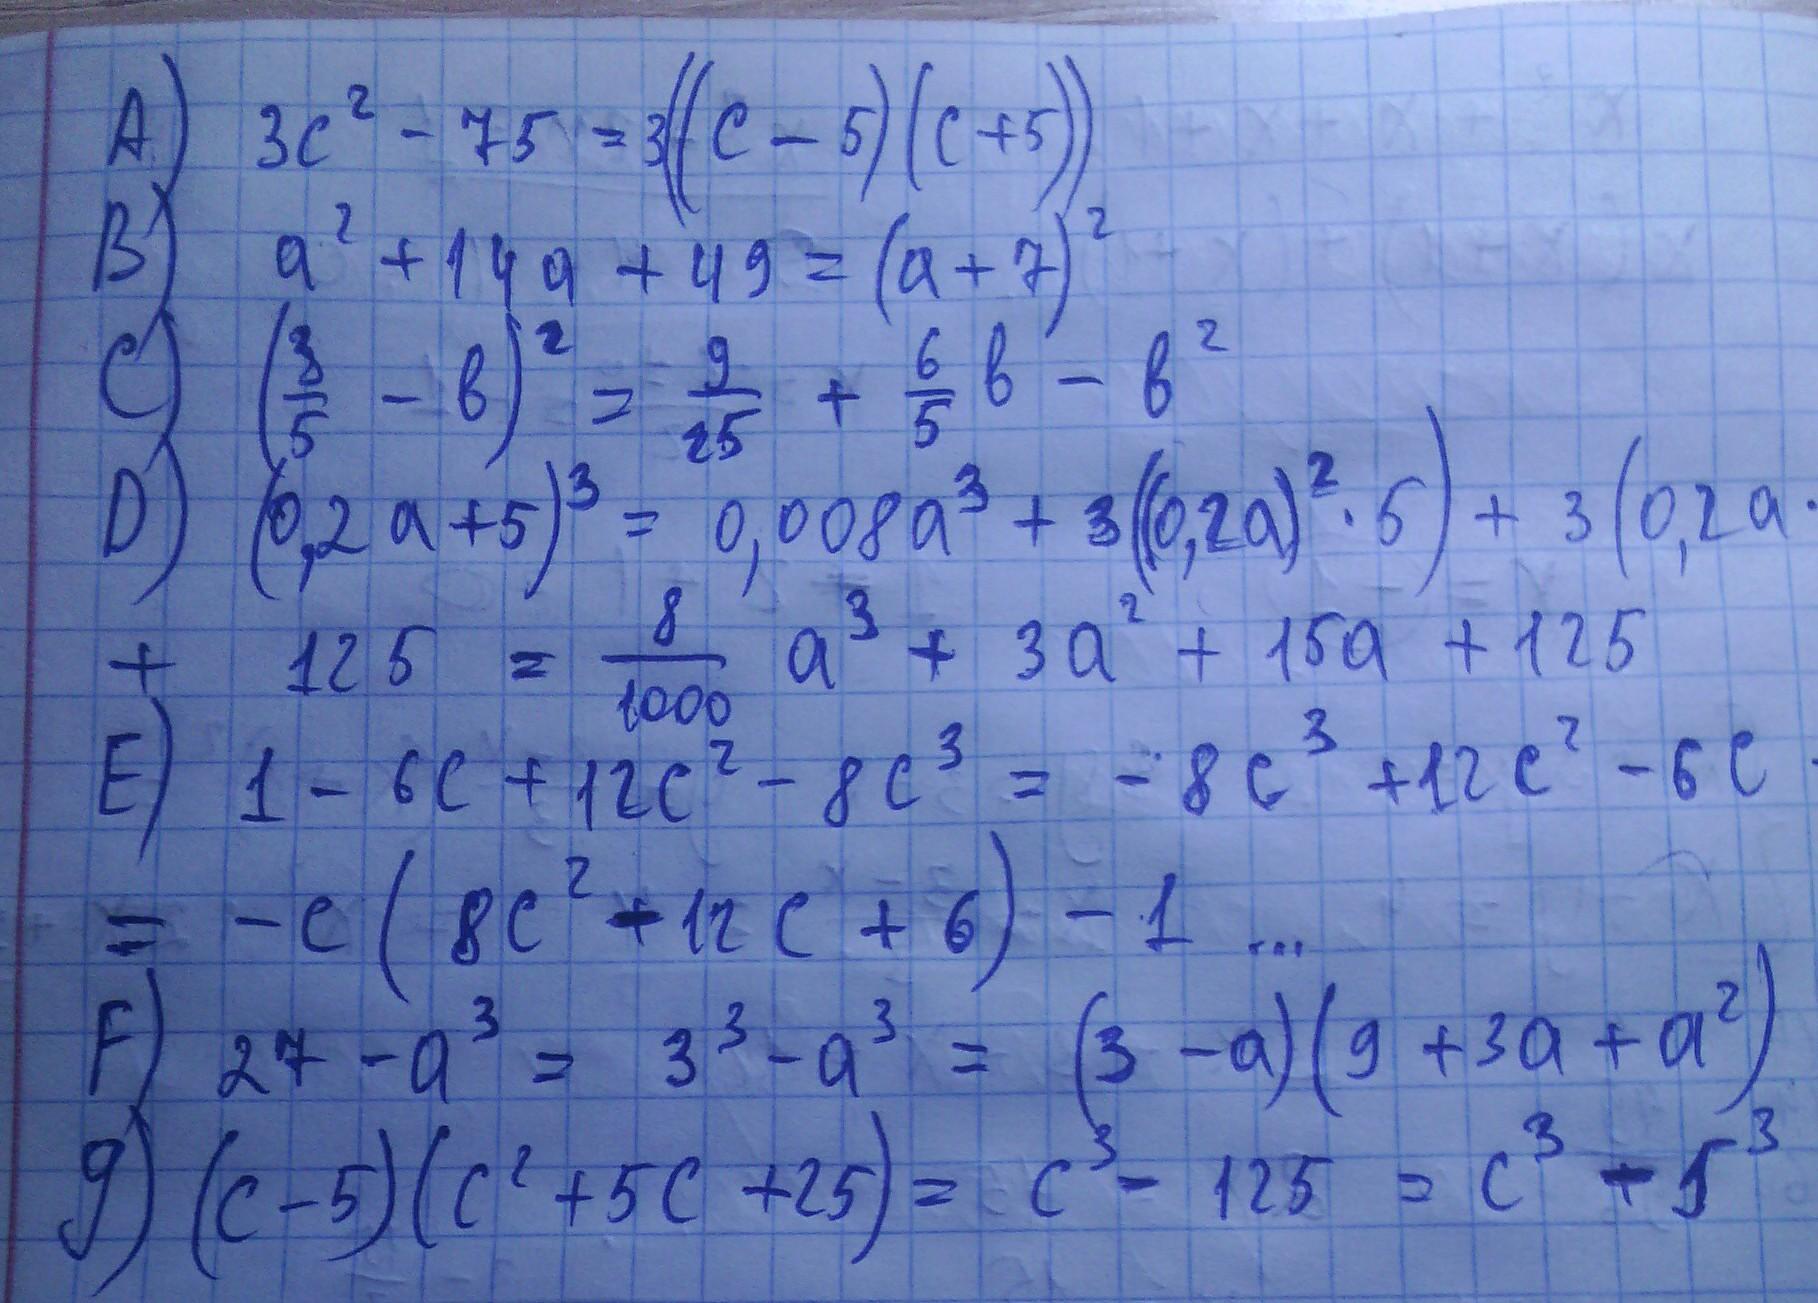 A) 3c² - 75 = 3((c - 5)(c + 5))
B) a² + 14a + 49 = (a + 7)²
C) (3/5 - b)² = 9/25 + 6/5 b - b²
D) (0,2a + 5)³ = 0,008a³ + 3((0,2a)² · 5) + 3(0,2a ·
+ 125 = 8/1000 a³ + 3a² + 15a + 125
E) 1 - 6c + 12c² - 8c³ = - 8c³ + 12c² - 6c
= -c(8c² - 12c + 6) - 1 ...
F) 27 - a³ = 3³ - a³ = (3 - a)(9 + 3a + a²)
g) (c - 5)(c² + 5c + 25) = c³ - 125 = c³ - 5³